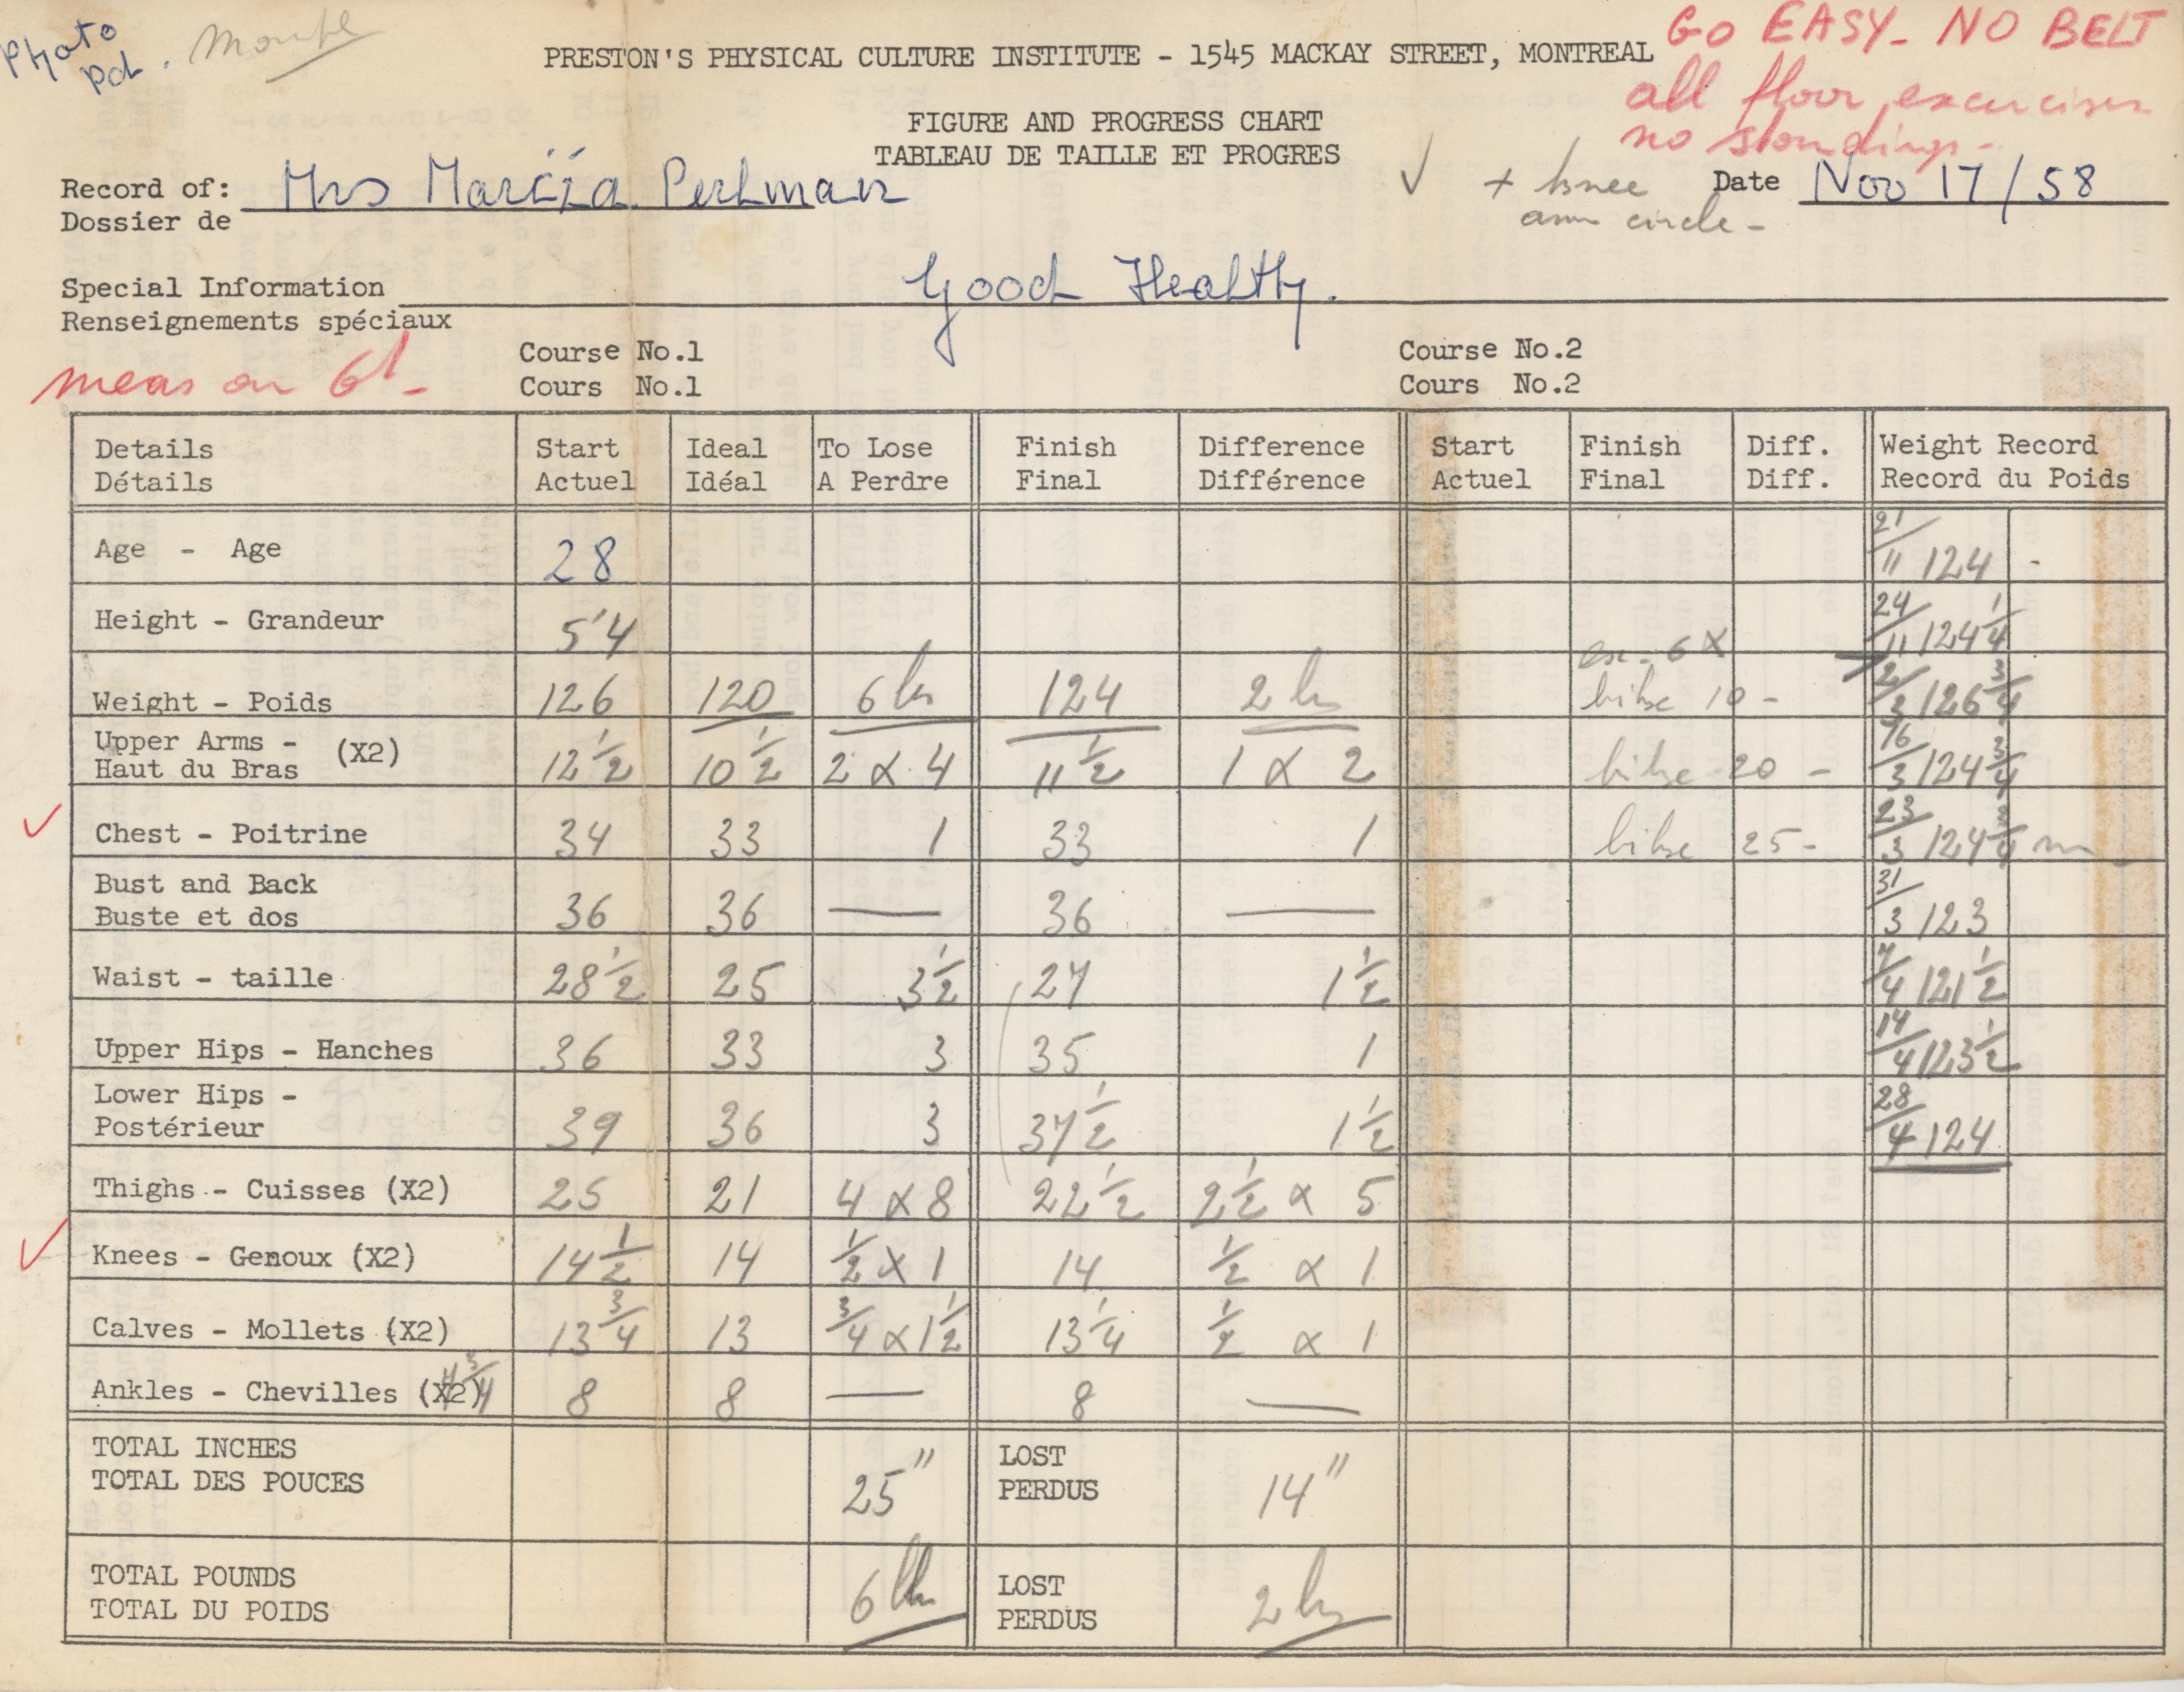 Photo
pd.
GO EASY - NO BELT
all floor excercises
no standings -
PRESTON'S PHYSICAL CULTURE INSTITUTE - 1545 MACKAY STREET, MONTREAL
FIGURE AND PROGRESS CHART
TABLEAU DE TAILLE ET PROGRES
✓ + knee
arm circle -
Record of: Mrs Marcia Perlman
Dossier de
Date Nov 17/58
Special Information Good Healthy.
Renseignements spéciaux
meas on 6th -
Course No.1 Course No.2
Cours No.1 Cours No.2
Details Start Ideal To Lose Finish Difference Start Finish Diff. Weight Record
Détails Actuel Idéal A Perdre Final Différence Actuel Final Diff. Record du Poids
Age - Age 28 21/11 124
Height - Grandeur 5'4 24/11 124 1/4
ex - 6 X
Weight - Poids 126 120 6 lbs 124 2 lbs 10 - 2/3 126 3/4
Upper Arms -
Haut du Bras (X2) 12 1/2 10 1/2 2 X 4 11 1/2 1 X 2 20 - 16/3 124 3/4
✓ Chest - Poitrine 34 33 1 33 1 25 - 23/3 124 3/4
Bust and Back
Buste et dos 36 36 — 36 — 31/3 123
Waist - taille 28 1/2 25 3 1/2 27 1 1/2 7/4 121 1/2
Upper Hips - Hanches 36 33 3 35 1 14/4 123 1/2
Lower Hips -
Postérieur 39 36 3 37 1/2 1 1/2 28/4 124
Thighs - Cuisses (X2) 25 21 4 X 8 22 1/2 2 1/2 X 5
✓ Knees - Genoux (X2) 14 1/2 14 1/2 X 1 14 1/2 X 1
Calves - Mollets (X2) 13 3/4 13 3/4 X 1 1/2 13 1/4 1/2 X 1
Ankles - Chevilles (X2) 8 8 — 8 —
TOTAL INCHES
TOTAL DES POUCES 25"
LOST
PERDUS 14"
TOTAL POUNDS
TOTAL DU POIDS 6 lbs
LOST
PERDUS 2 lbs